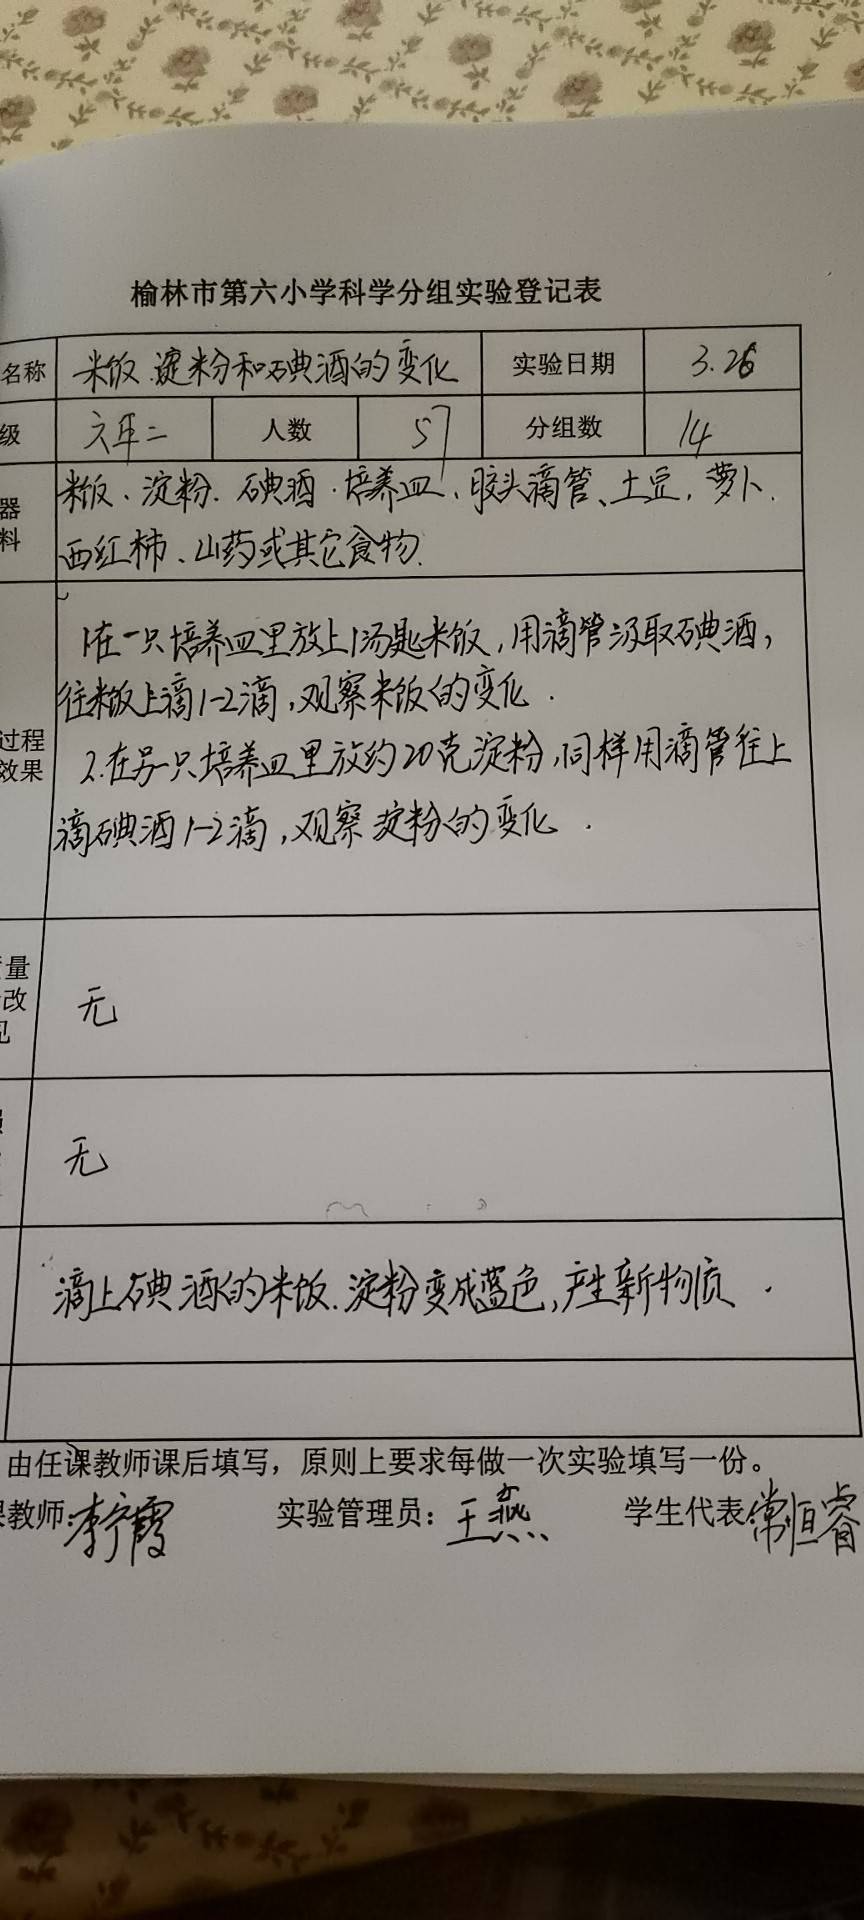 榆林市第六小学科学分组实验登记表
名称 米饭、淀粉和碘酒的变化 实验日期 3.26
级 六年二 人数 57 分组数 14
器
料
米饭、淀粉.碘酒.培养皿、胶头滴管、土豆,萝卜.
西红柿、山药或其它食物.
过程
效果
1在一只培养皿里放上1汤匙米饭,用滴管汲取碘酒,
往米饭上滴1-2滴,观察米饭的变化.
2.在另一只培养皿里放约20克淀粉,同样用滴管往上
滴碘酒1-2滴,观察淀粉的变化.
量
改
见
无
无
滴上碘酒的米饭.淀粉变成蓝色,产生新物质.
由任课教师课后填写,原则上要求每做一次实验填写一份。
课教师:李宁霞 实验管理员:王燕 学生代表:常恒睿